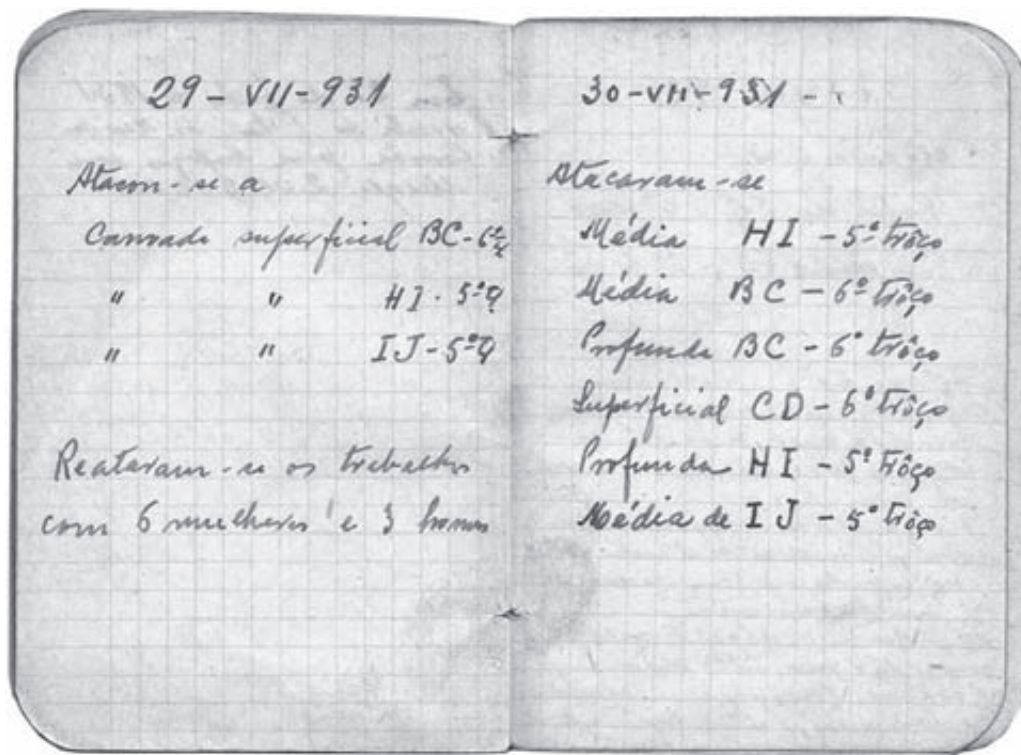 29-VII-931
Atacou-se a
Camada superficial BC-6º
" " HI-5º
" " IJ-5º
Reataram-se os trabalhos
com 6 mulheres e 3 homens
30-VII-931
Atacaram-se
Média HI - 5º trôço
Média BC - 6º trôço
Profunda BC - 6º trôço
Superficial CD - 6º trôço
Profunda HI - 5º trôço
Média de IJ - 5º trôço